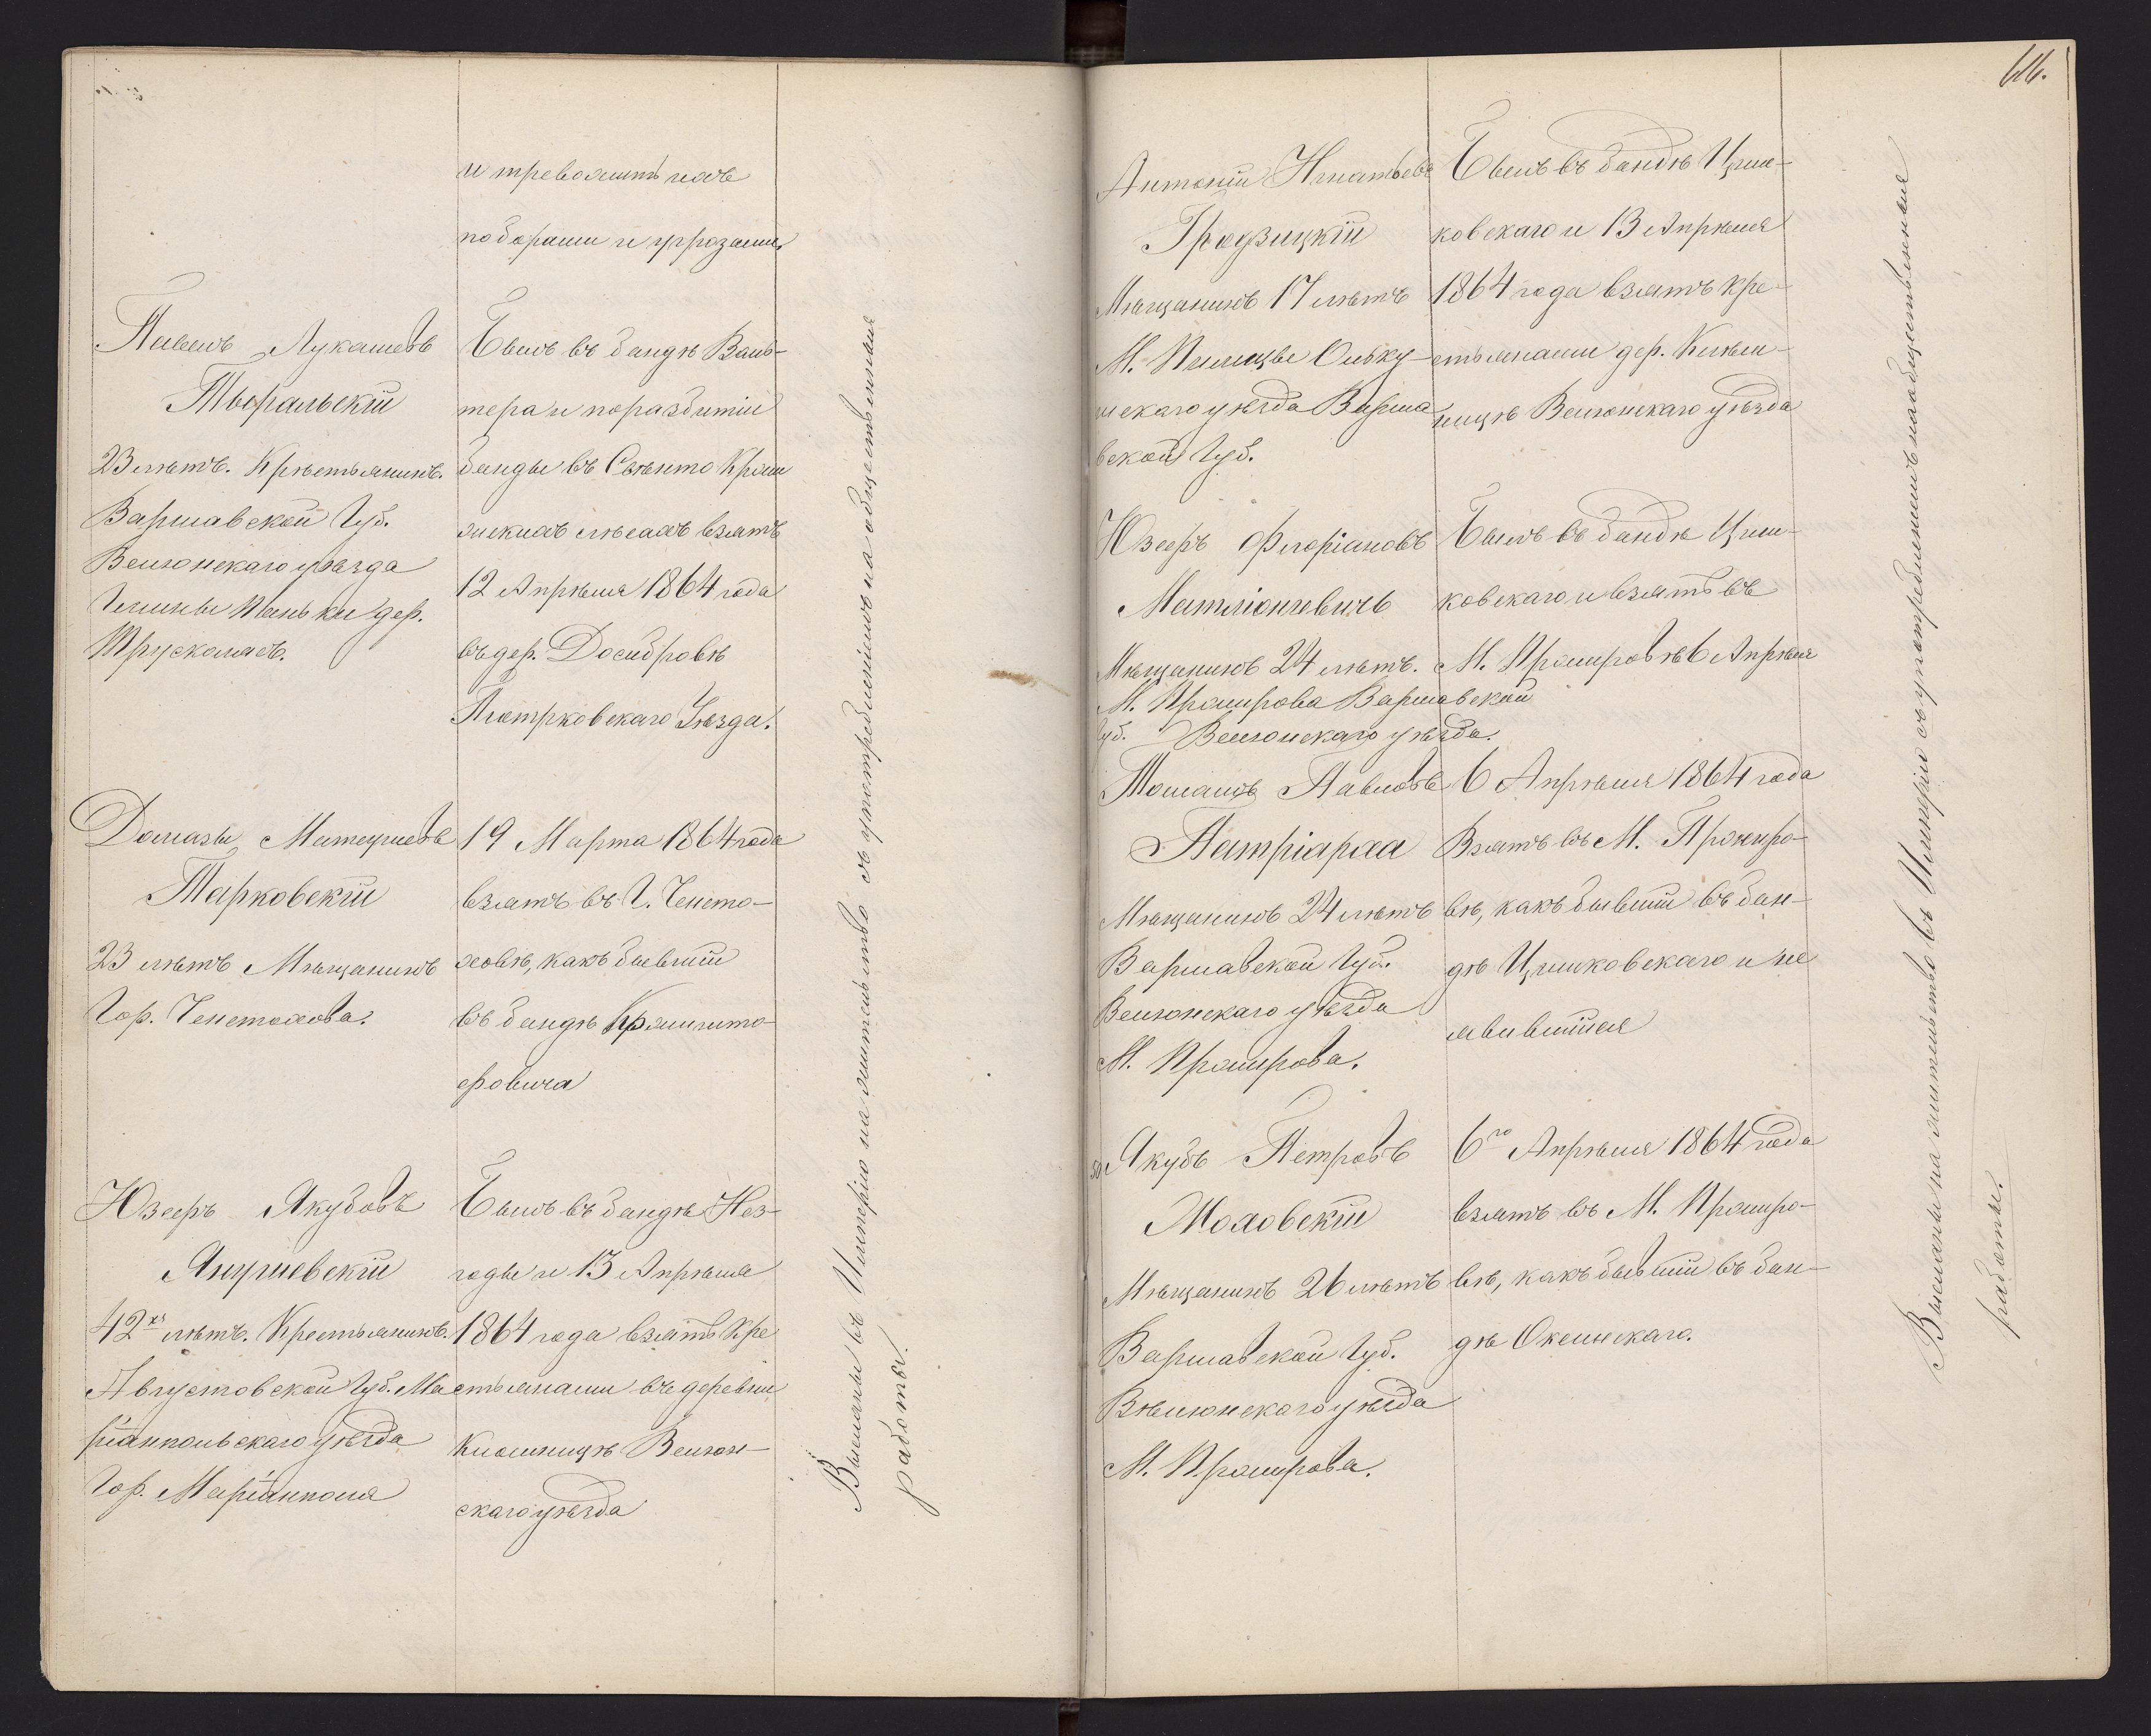 и тревожить ихъ
поборами и угрозами
Павелъ Лукашевъ
Тыральскій
23 лѣтъ. Крѣстьянинъ.
Варшавской Губ.
Велюнскаго уѣзда
Гмины Паньки дер.
Трусколясъ.
Былъ въ бандѣ Валь-
тера и поразбитіи
банды въ Свѣнто Крыж
жскихъ лѣсахъ взятъ
12 Апрѣля 1864 года
въ дер.
Піотрковскаго Уѣзда.
Матеушевъ
Тарковскій
23 лѣтъ Мѣщанинъ
Гор. Ченстохова.
19 Марта 1864 года
взятъ въ Г. Ченсто-
ховѣ, какъ бывшій
въ бандѣ
фовича
Юзефъ Якубовъ
Янушевскій
42хъ лѣтъ. Крестьянинъ.
Августовской Губ. Ма
ріампольскаго уѣзда
Гор. Маріамполя
Былъ въ бандѣ Нез-
годы и 13 Апрѣля
1864 года взятъ Кре
стьянами въ деревни
Велюн-
скаго уѣзда
Высланы въ Имперію на жительство съ употребленіемъ на общественныя
работы.
616.
Антоній Игнатьевъ
Гродзицкій
Мѣщанинъ 17 лѣтъ
М. Пилицы Ольку-
шскаго уѣзда Варша
вской Губ.
Былъ въ бандѣ Цѣш-
ковскаго и 13 Апрѣля
1864 года взятъ кре-
стьянами дер.
ницѣ Велюнскаго уѣзда
Юзефъ Флоріановъ
Мѣщанинъ 24 лѣтъ.
М. Пражирова Варшавской
Губ. Велюнскаго уѣзда.
Былъ въ бандѣ Цѣш-
ковскаго и взятъ въ
М. Пражировѣ 6 Апрѣля
Томашъ Павловъ
Патріарха
Мѣщанинъ 24 лѣтъ
Варшавской Губ.
Велюнскаго уѣзда
М. Пражирова.
6 Апрѣля 1864 года
Взятъ въ М. Пражиро-
вѣ, какъ бывшій въ бан-
дѣ Цѣшковскаго и не
явившійся
Якубъ Петровъ
Моховскій
Мѣщанинъ 26 лѣтъ
Варшавской Губ.
Вѣлюнскаго уѣзда
М. Пражирова.
6го Апрѣля 1864 года
взятъ въ М. Пражиро-
вѣ, какъ бывшій въ бан-
дѣ Оксинскаго.
Высланы на жительство въ Имперію съ употребленіемъ на общественныя
работы.